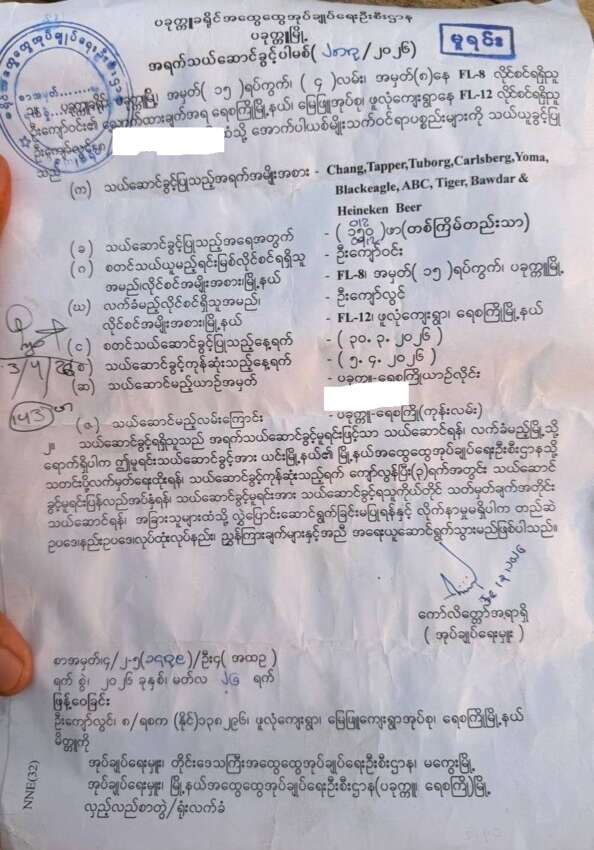 ပခုက္ကူခရိုင်အထွေထွေအုပ်ချုပ်ရေးဦးစီးဌာန
ပခုက္ကူမြို့
မူရင်း
အရက်သယ်ဆောင်ခွင့်ပါမစ်( /၂၀၂၆)
စာအမှတ်
ပခုက္ကူမြို့၊ အမှတ်(၁၅)ရပ်ကွက်၊ (၄)လမ်း၊ အမှတ်(၈)နေ FL-8 လိုင်စင်ရရှိသူ
ဦးကျော်ဝင်း၏ လျှောက်ထားချက်အရ ရေစကြိုမြို့နယ်၊ မြေဖြူအုပ်စု၊ ဖူလုံကျေးရွာနေ FL-12 လိုင်စင်ရရှိသူ
ဦးကျော်လွင် ထံသို့ အောက်ပါယစ်မျိုးသက်ဝင်ရာပစ္စည်းများကို သယ်ယူခွင့်ပြု
သည်
(က) သယ်ဆောင်ခွင့်ပြုသည့်အရက်အမျိုးအစား - Chang,Tapper,Tuborg,Carlsberg,Yoma,
Blackeagle, ABC, Tiger, Bawdar &
Heineken Beer
(ခ) သယ်ဆောင်ခွင့်ပြုသည့်အရေအတွက် - (၁၅၀)ဖာ(တစ်ကြိမ်တည်းသာ)
(ဂ) စတင်သယ်ယူမည့်ရင်းမြစ်လိုင်စင်ရရှိသူ - ဦးကျော်ဝင်း
အမည်၊လိုင်စင်အမျိုးအစား၊မြို့နယ် - FL-8၊ အမှတ်(၁၅)ရပ်ကွက်၊ ပခုက္ကူမြို့
(ဃ) လက်ခံမည့်လိုင်စင်ရရှိသူအမည်၊ - ဦးကျော်လွင်
လိုင်စင်အမျိုးအစား၊မြို့နယ် - FL-12၊ ဖူလုံကျေးရွာ၊ ရေစကြိုမြို့နယ်
(င) စတင်သယ်ဆောင်ခွင့်ပြုသည့်နေ့ရက် - (၃၀.၃.၂၀၂၆)
(စ) သယ်ဆောင်ခွင့်ကုန်ဆုံးသည့်နေ့ရက် - (၅.၄.၂၀၂၆)
3/4/26
(ဆ) သယ်ဆောင်မည့်ယာဉ်အမှတ် - ပခုက္ကူ-ရေစကြိုယာဉ်လိုင်း
143 ဖာ
(ဇ) သယ်ဆောင်မည့်လမ်းကြောင်း - ပခုက္ကူ-ရေစကြို(ကုန်းလမ်း)
၂။ သယ်ဆောင်ခွင့်ရရှိသူသည် အရက်သယ်ဆောင်ခွင့်မူရင်းဖြင့်သာ သယ်ဆောင်ရန်၊ လက်ခံမည့်မြို့သို့
ရောက်ရှိပါက ဤမူရင်းသယ်ဆောင်ခွင့်အား ယင်းမြို့နယ်၏ မြို့နယ်အထွေထွေအုပ်ချုပ်ရေးဦးစီးဌာနသို့
သတင်းပို့လက်မှတ်ရေးထိုးရန်၊ သယ်ဆောင်ခွင့်ကုန်ဆုံးသည့်ရက် ကျော်လွန်ပြီး(၃)ရက်အတွင်း သယ်ဆောင်
ခွင့်မူရင်းပြန်လည်အပ်နှံရန်၊ သယ်ဆောင်ခွင့်မူရင်းအား သယ်ဆောင်ခွင့်ရသူကိုယ်တိုင် သတ်မှတ်ချက်အတိုင်း
သယ်ဆောင်ရန်၊ အခြားသူများထံသို့ လွှဲပြောင်းဆောင်ရွက်ခြင်းမပြုရန်နှင့် လိုက်နာမှုမရှိပါက တည်ဆဲ
ဥပဒေ၊နည်းဥပဒေ၊လုပ်ထုံးလုပ်နည်း၊ ညွှန်ကြားချက်များနှင့်အညီ အရေးယူဆောင်ရွက်သွားမည်ဖြစ်ပါသည်။
ကော်လိတ္တော်အရာရှိ
(အုပ်ချုပ်ရေးမှူး)
စာအမှတ်၊၄/၂-၅( )/ဦး၄(အထဥ)
ရက်စွဲ၊ ၂၀၂၆ ခုနှစ်၊ မတ်လ ၂၆ ရက်
ဖြန့်ဝေခြင်း
ဦးကျော်လွင်၊ ၈/ရစက (နိုင်)၁၃၈၂၉၆၊ ဖူလုံကျေးရွာ၊ မြေဖြူကျေးရွာအုပ်စု၊ ရေစကြိုမြို့နယ်
မိတ္တူကို
အုပ်ချုပ်ရေးမှူး၊ တိုင်းဒေသကြီးအထွေထွေအုပ်ချုပ်ရေးဦးစီးဌာန၊ မကွေးမြို့
အုပ်ချုပ်ရေးမှူး၊ မြို့နယ်အထွေထွေအုပ်ချုပ်ရေးဦးစီးဌာန(ပခုက္ကူ၊ ရေစကြို)မြို့
လှည့်လည်စာတွဲ/ရုံးလက်ခံ
NNE(32)